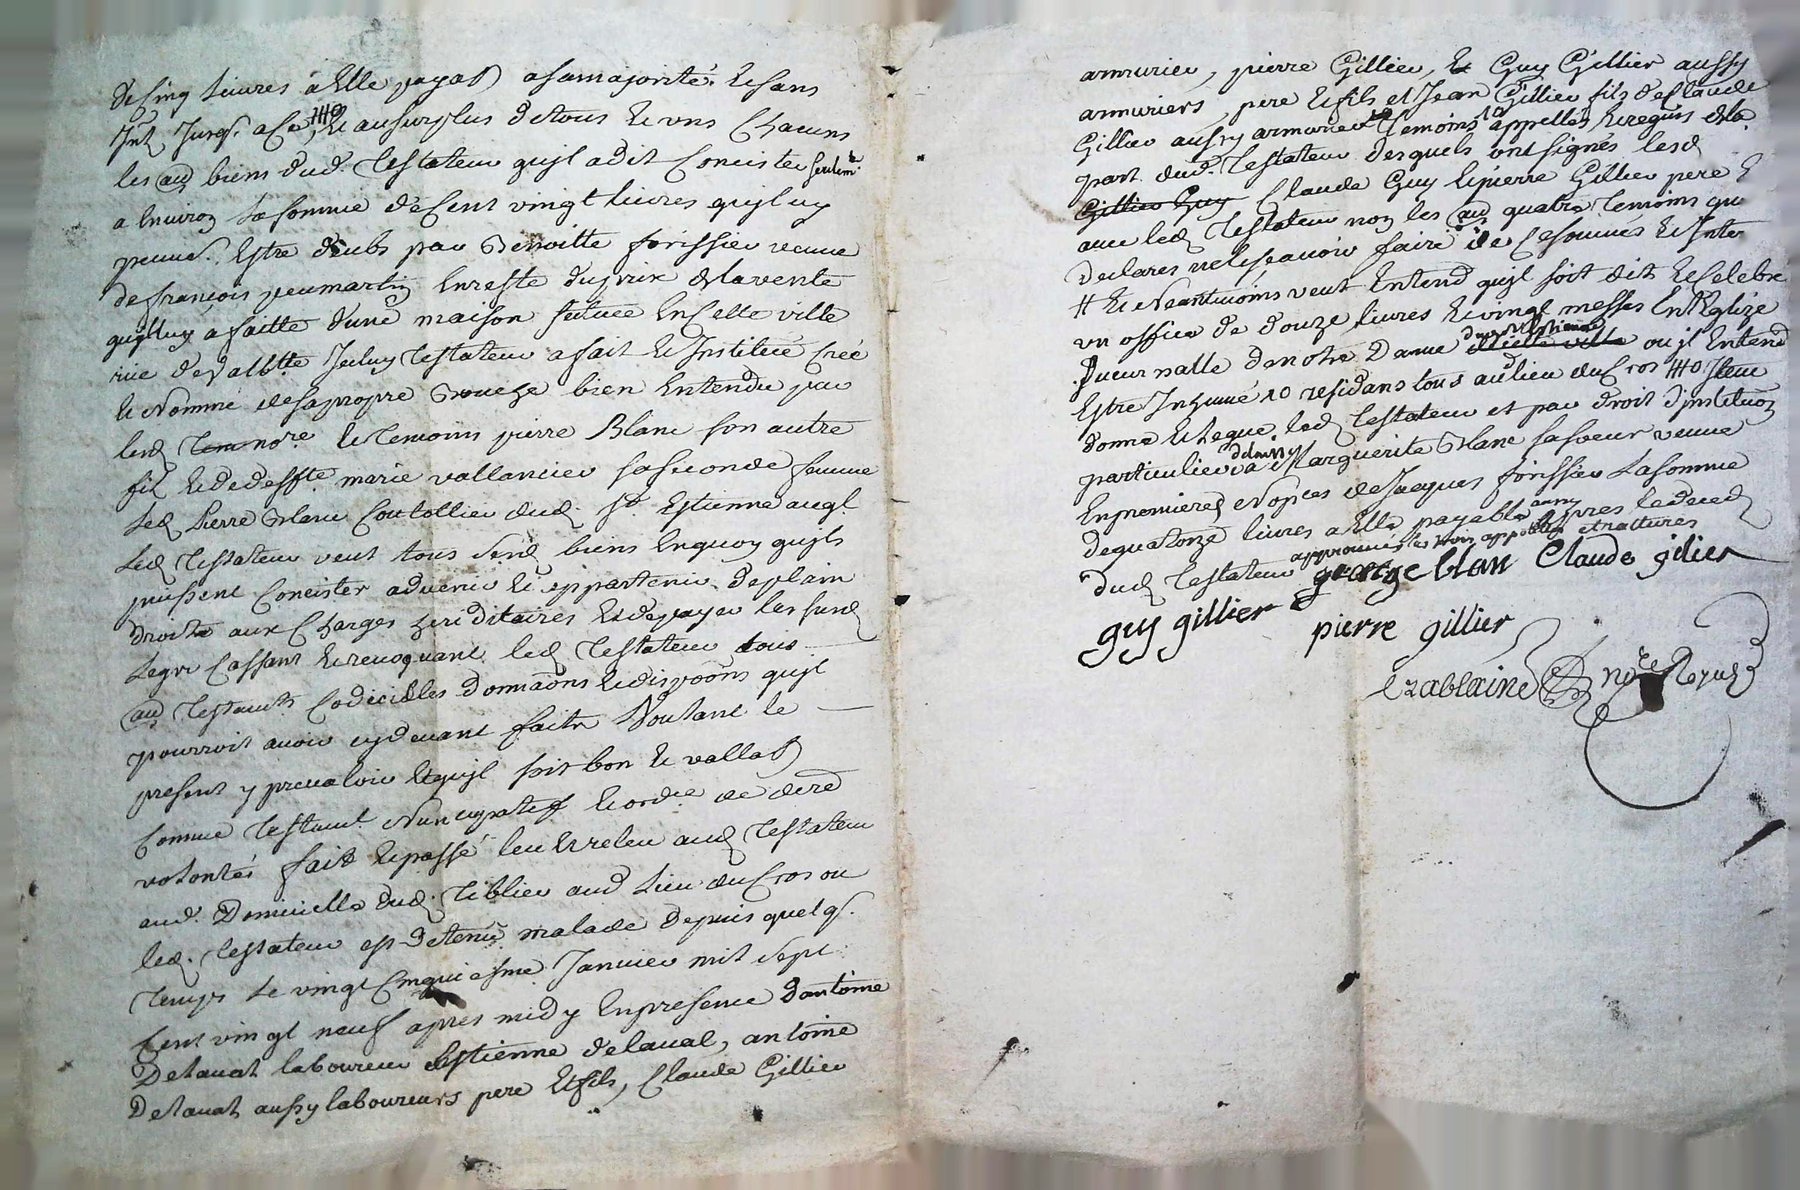 de Cinq Livres à Elle payab a sa majorité. Et sans
Int jusqs. a Ce, Et au surplus de tous Et uns Chacuns
les aus biens dud. Testateur qu'jl a dit Concister seulemt.
a Environ La somme de Cent vingt livres qu'jl luy
Estre deubs par Benoitte forissier veuve
de françois peumartin En reste du prix de la vente
qu'jl luy a faitte d'une maison sittuée En Cette ville
rue de Jceluy Testateur a fait Et Institué Créé
Et Nommé de sa propre Bouche bien Entendu par
led nore. Et temoins pierre Blanc son autre
fil Et de deffte marie vallancier sa seconde femme
Led Pierre Blanc Coutellier dud. St Estienne auql
Led Testateur veut tous send biens En quoy qu'jls
puissent Concister advenir Et appartenir de plain
droitte aux Charges hereditaires Et de payer les susd
Legs Cassant Et revoquant led Testateur tous
aus Testamts Codicilles donnaons Et dispoons qu'jl
pourroit avoir cydevant faits Voulant le
present y prevaloir Et qu'jl soit bon Et vallab
Comme Testamt. Nuncupatif Et ordre de dere
volontés fait Et passé leu Et releu aud Testateur
aud. Domicille dud. Tiblier aud Lieu du Cros ou
led. Testateur est detenu malade depuis quelqs.
Temps Le vingt Cinquiesme Janvier mil sept
Cent vingt neuf apres midy En presence d'antoine
Delaval laboureur Estienne delaval, antoine
Delaval aussy laboureurs pere Et fils, Claude Gillier
armurier, pierre Gillier, Et Guy Gillier aussy
armuriers pere Et fils et Jean Gillier fils de Claude
Gillier aussy armurier Temoins appellés Et requis de la
part dud. Testateur desquels ont signés lesd
Gillier Guy Claude Guy Et pierre Gillier pere
avec led Testateur non les aus quatre Temoins qui
declares ne le scavoir faire de Ce sommés Et Inter
# Et Neantmoins veut Entend qu'jl soit dit Et Celebré
un office de douze livres Et vingt messes En l'Eglize
de notre Dame de St Estienne ou jl Entend
Estre Inhumé 10 residans tous aud lieu du Cros ##0 Jtem
donne Et legue led Testateur et par droit d'jnstituon
particuliere a Marguerite Blanc sa soeur veuve
En premieres Nopces de Jacques forissier La somme
de quatorze livres a Elle payable apres le deced
dud Testateur approuvés les trois appostilles et rattures
george blan Claude gilier
guy gillier
pierre gillier
Crablaine nre Royal